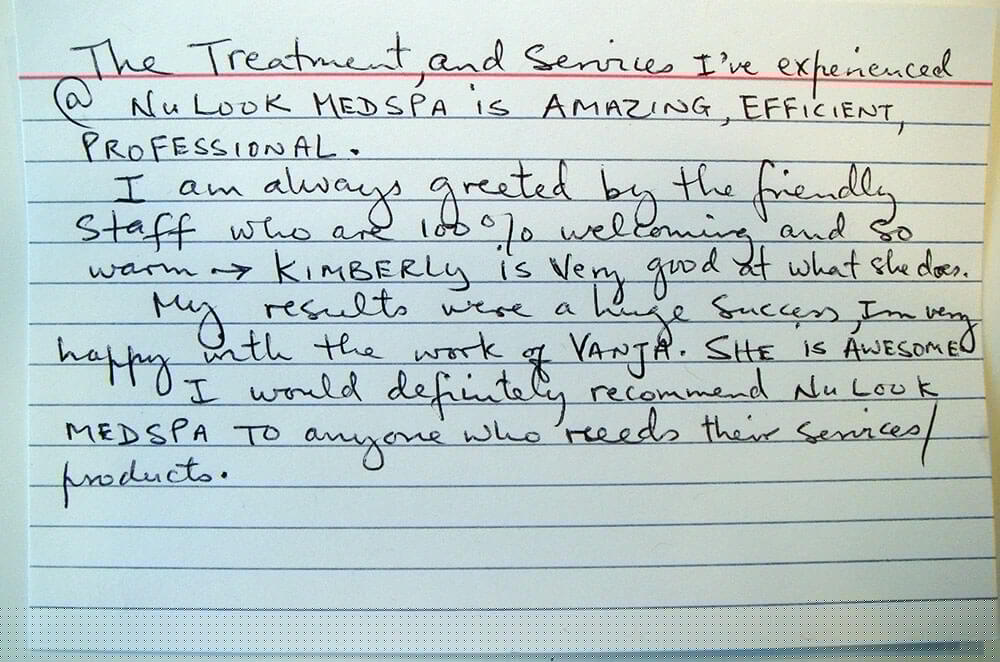 The Treatment, and Services I've experienced
@ NU LOOK MEDSPA is AMAZING, EFFICIENT,
PROFESSIONAL.
I am always greeted by the friendly
staff who are 100% welcoming and so
warm → KIMBERLY is very good at what she does.
My results were a huge success, I'm very
happy with the work of VANJA. SHE is AWESOME
I would definitely recommend NU LOOK
MEDSPA TO anyone who needs their services/
products.